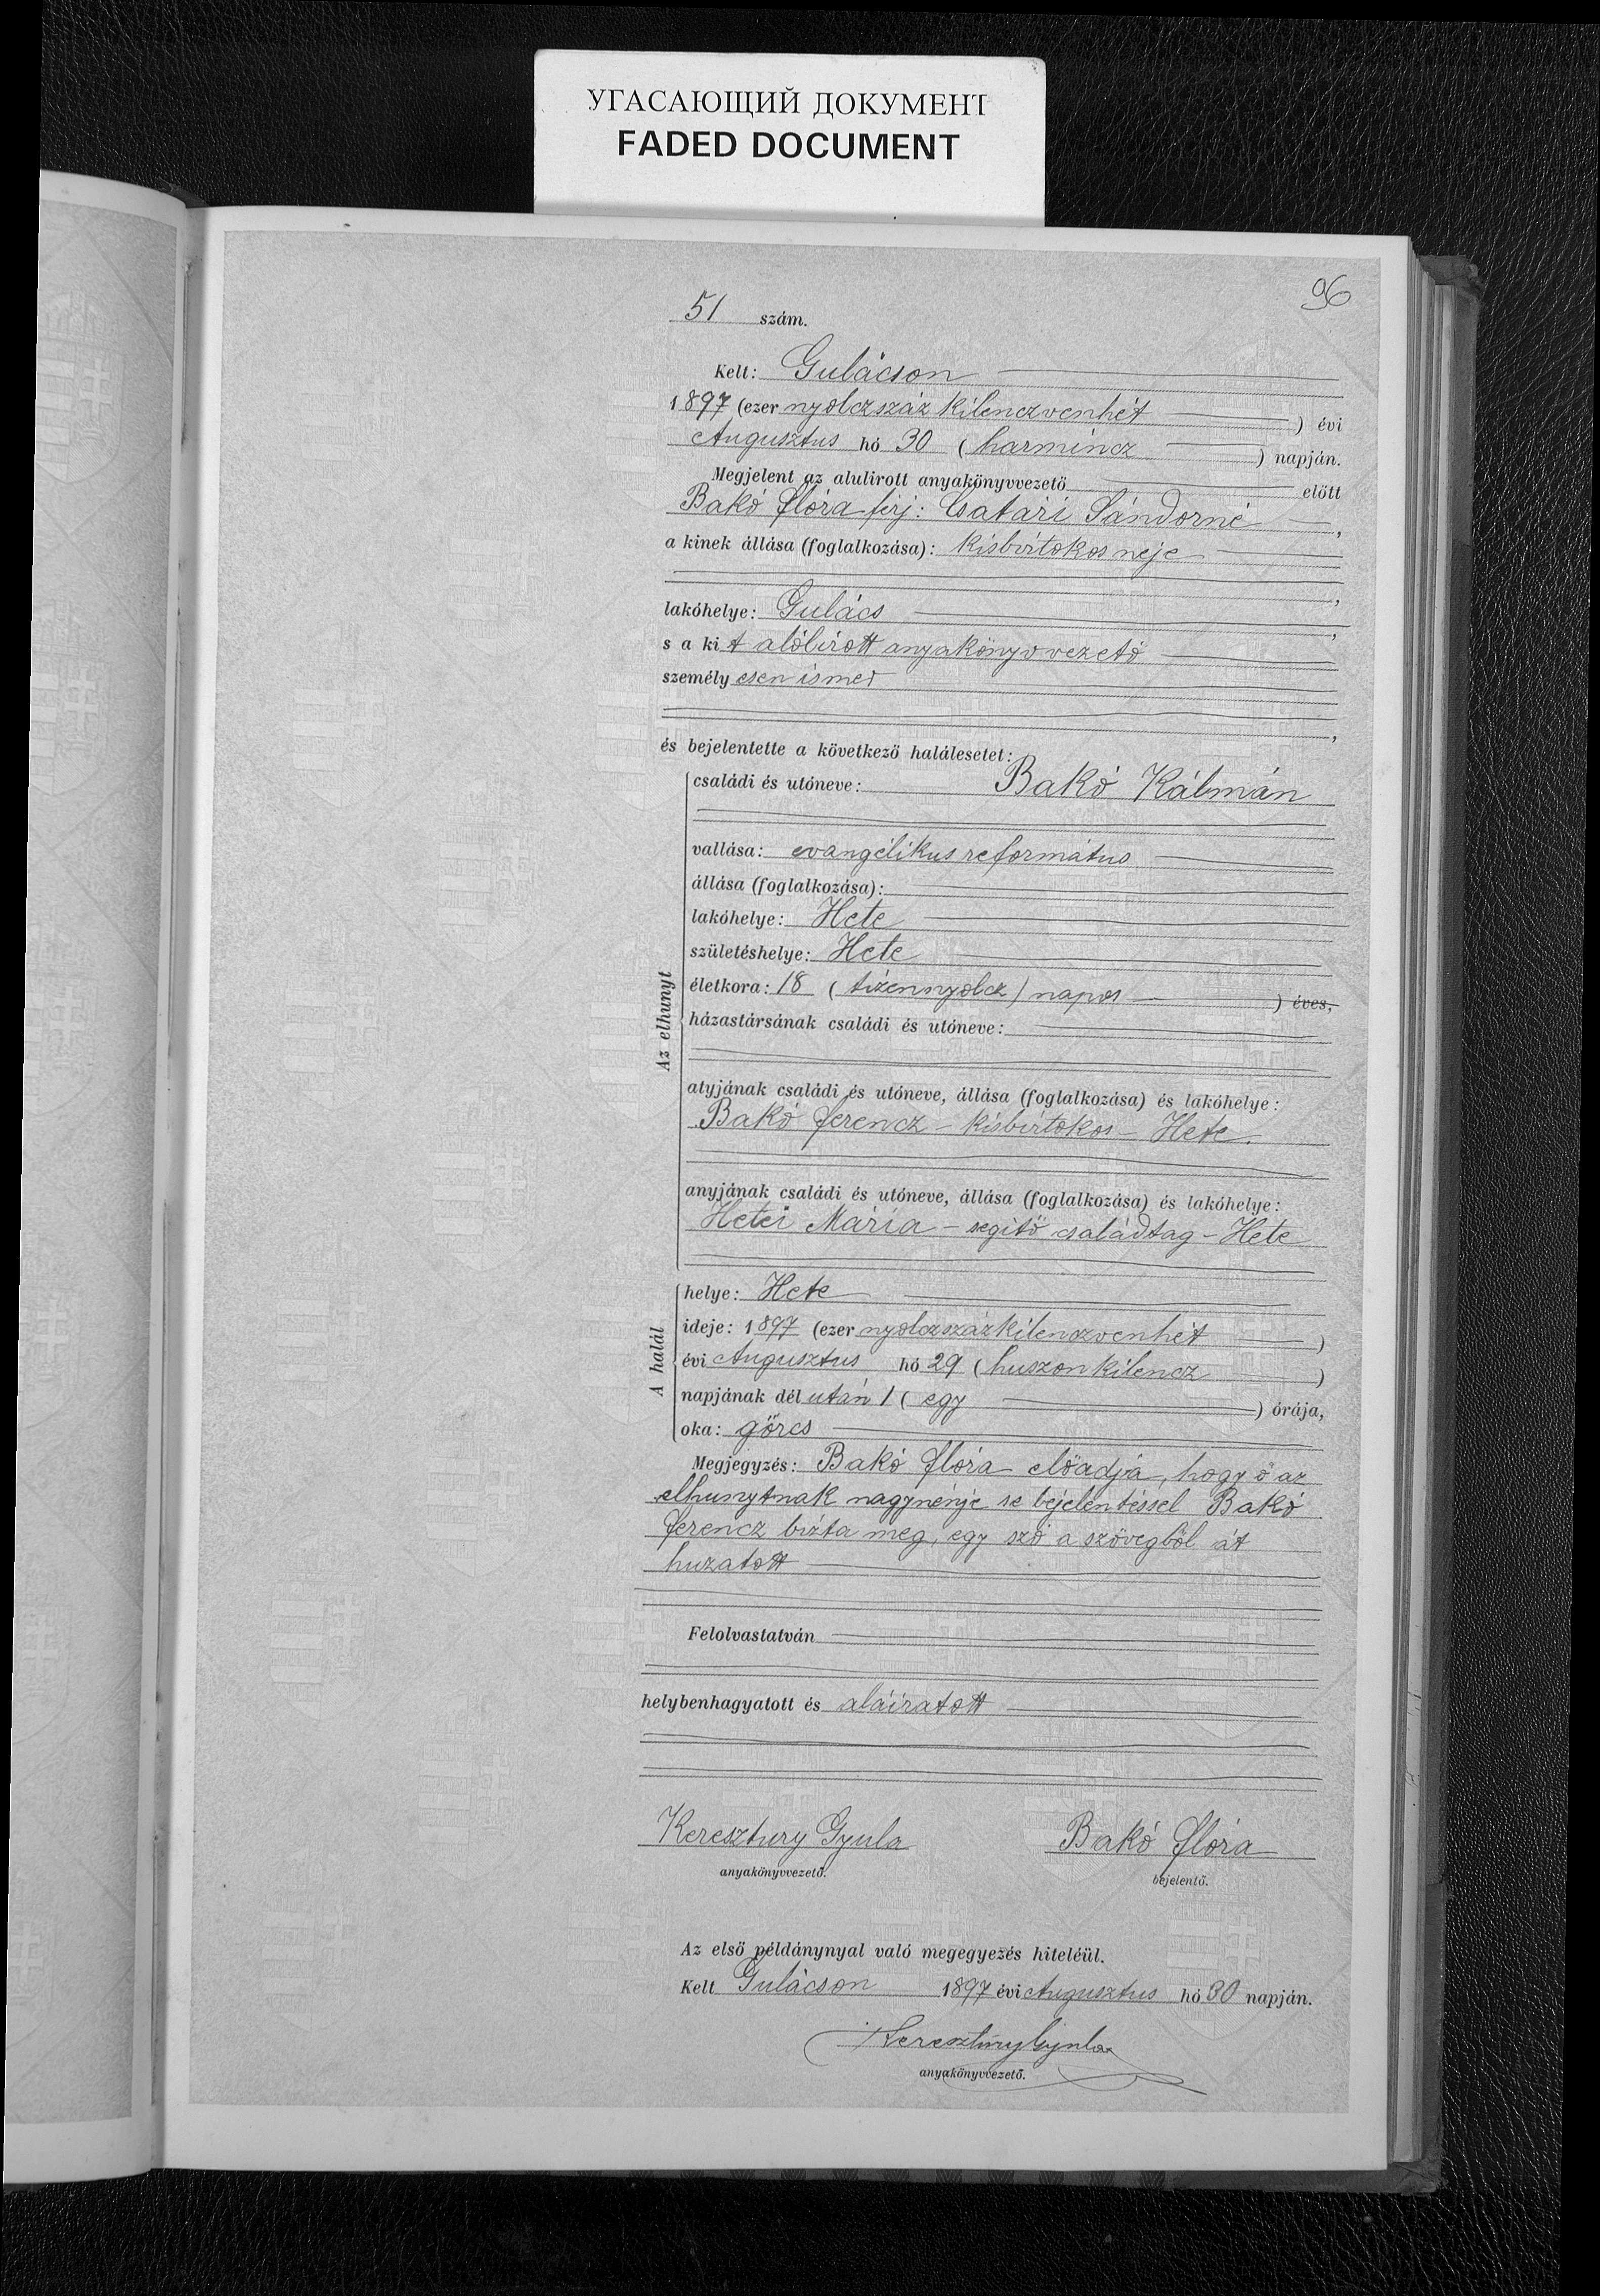 УГАСАЮЩИЙ ДОКУМЕНТ
FADED DOCUMENT
96
51 szám.
Kelt: Gulácson
1897 (ezer nyolczszáz kilenczvenhét) évi
Augusztus hó 30 (harmincz) napján.
Megjelent az alulirott anyakönyvvezető előtt
Bakó Flóra férj: Csatári Sándorné,
a kinek állása (foglalkozása): kisbirtokos neje
,
lakóhelye: Gulács,
s a kit alólirott anyakönyvvezető
személyesen ismer
,
és bejelentette a következő halálesetet:
Az elhunyt
családi és utóneve: Bakó Kálmán
vallása: evangélikus református
állása (foglalkozása):
lakóhelye: Hete
születéshelye: Hete
életkora: 18 (tizennyolcz) napos ) éves,
házastársának családi és utóneve:
atyjának családi és utóneve, állása (foglalkozása) és lakóhelye:
Bakó Ferencz – kisbirtokos – Hete.
anyjának családi és utóneve, állása (foglalkozása) és lakóhelye:
Hetei Mária – segitő családtag – Hete
A halál
helye: Hete
ideje: 1897 (ezer nyolczszázkilenczvenhét)
évi Augusztus hó 29 (huszonkilencz)
napjának dél után 1 (egy) órája,
oka: görcs
Megjegyzés: Bakó Flóra előadja, hogy ő az
elhunytnak nagynénje se bejelentéssel Bakó
Ferencz bizta meg, egy szó a szövegből át
huzatott
Felolvastatván
helybenhagyatott és aláiratott
Keresztury Gyula Bakó Flóra
anyakönyvvezető. bejelentő.
Az első példánynyal való megegyezés hiteléül.
Kelt Gulácson 1897 évi Augusztus hó 30 napján.
Keresztury Gyula
anyakönyvvezető.